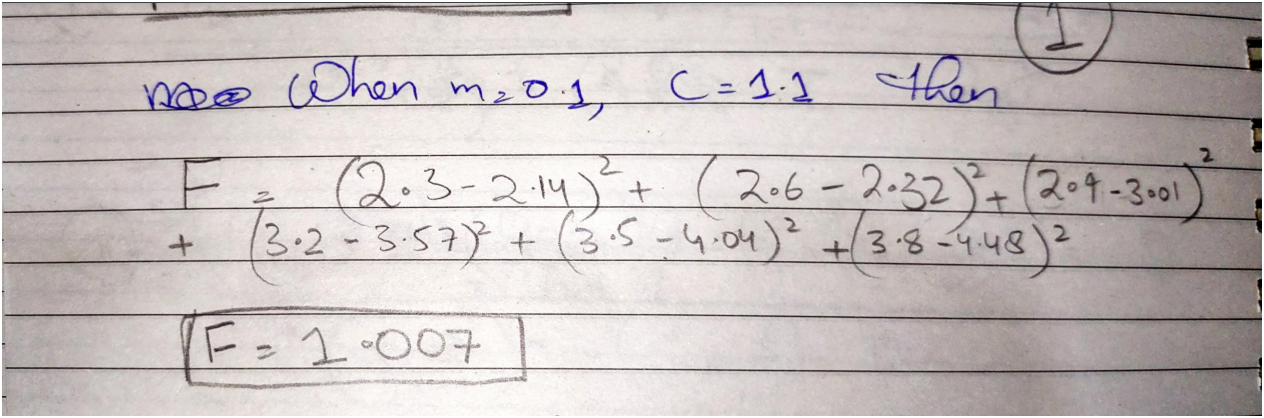 1
When m=0.1, C=1.1 then
F = (2.3-2.14)² + (2.6-2.32)² + (2.9-3.01)²
+ (3.2-3.57)² + (3.5-4.04)² + (3.8-4.48)²
F = 1.007